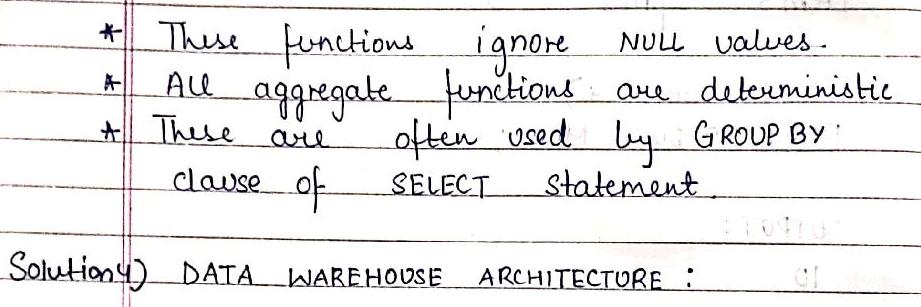 * These functions ignore NULL values.
* All aggregate functions are deterministic
* These are often used by GROUP BY
clause of SELECT statement.
Solution 4) DATA WAREHOUSE ARCHITECTURE :